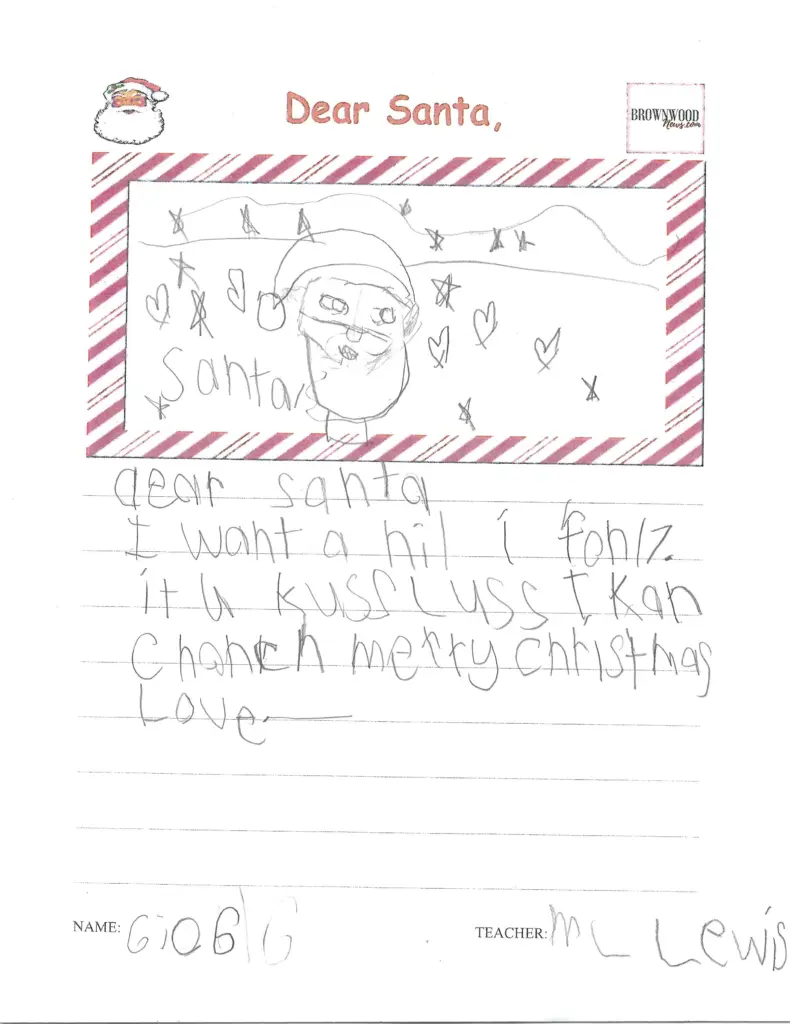 Dear Santa,
BROWNWOOD
News.com
Santa
dear santa
I want a hil i
it kuss Luss I kan
Chanch merry christmas
Love
NAME:
TEACHER: Lewis